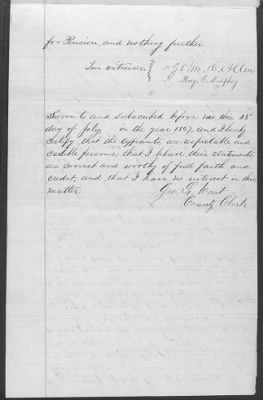 for Pension, and nothing further
Two witnesses
Sworn to and subscribed before me this 28th
day of July in the year 1867, and I hereby
certify that the affiants are respectable and
credible persons, that I believe their statements
are correct and worthy of full faith and
credit, and that I have no interest in this
matter
Geo
County Clerk